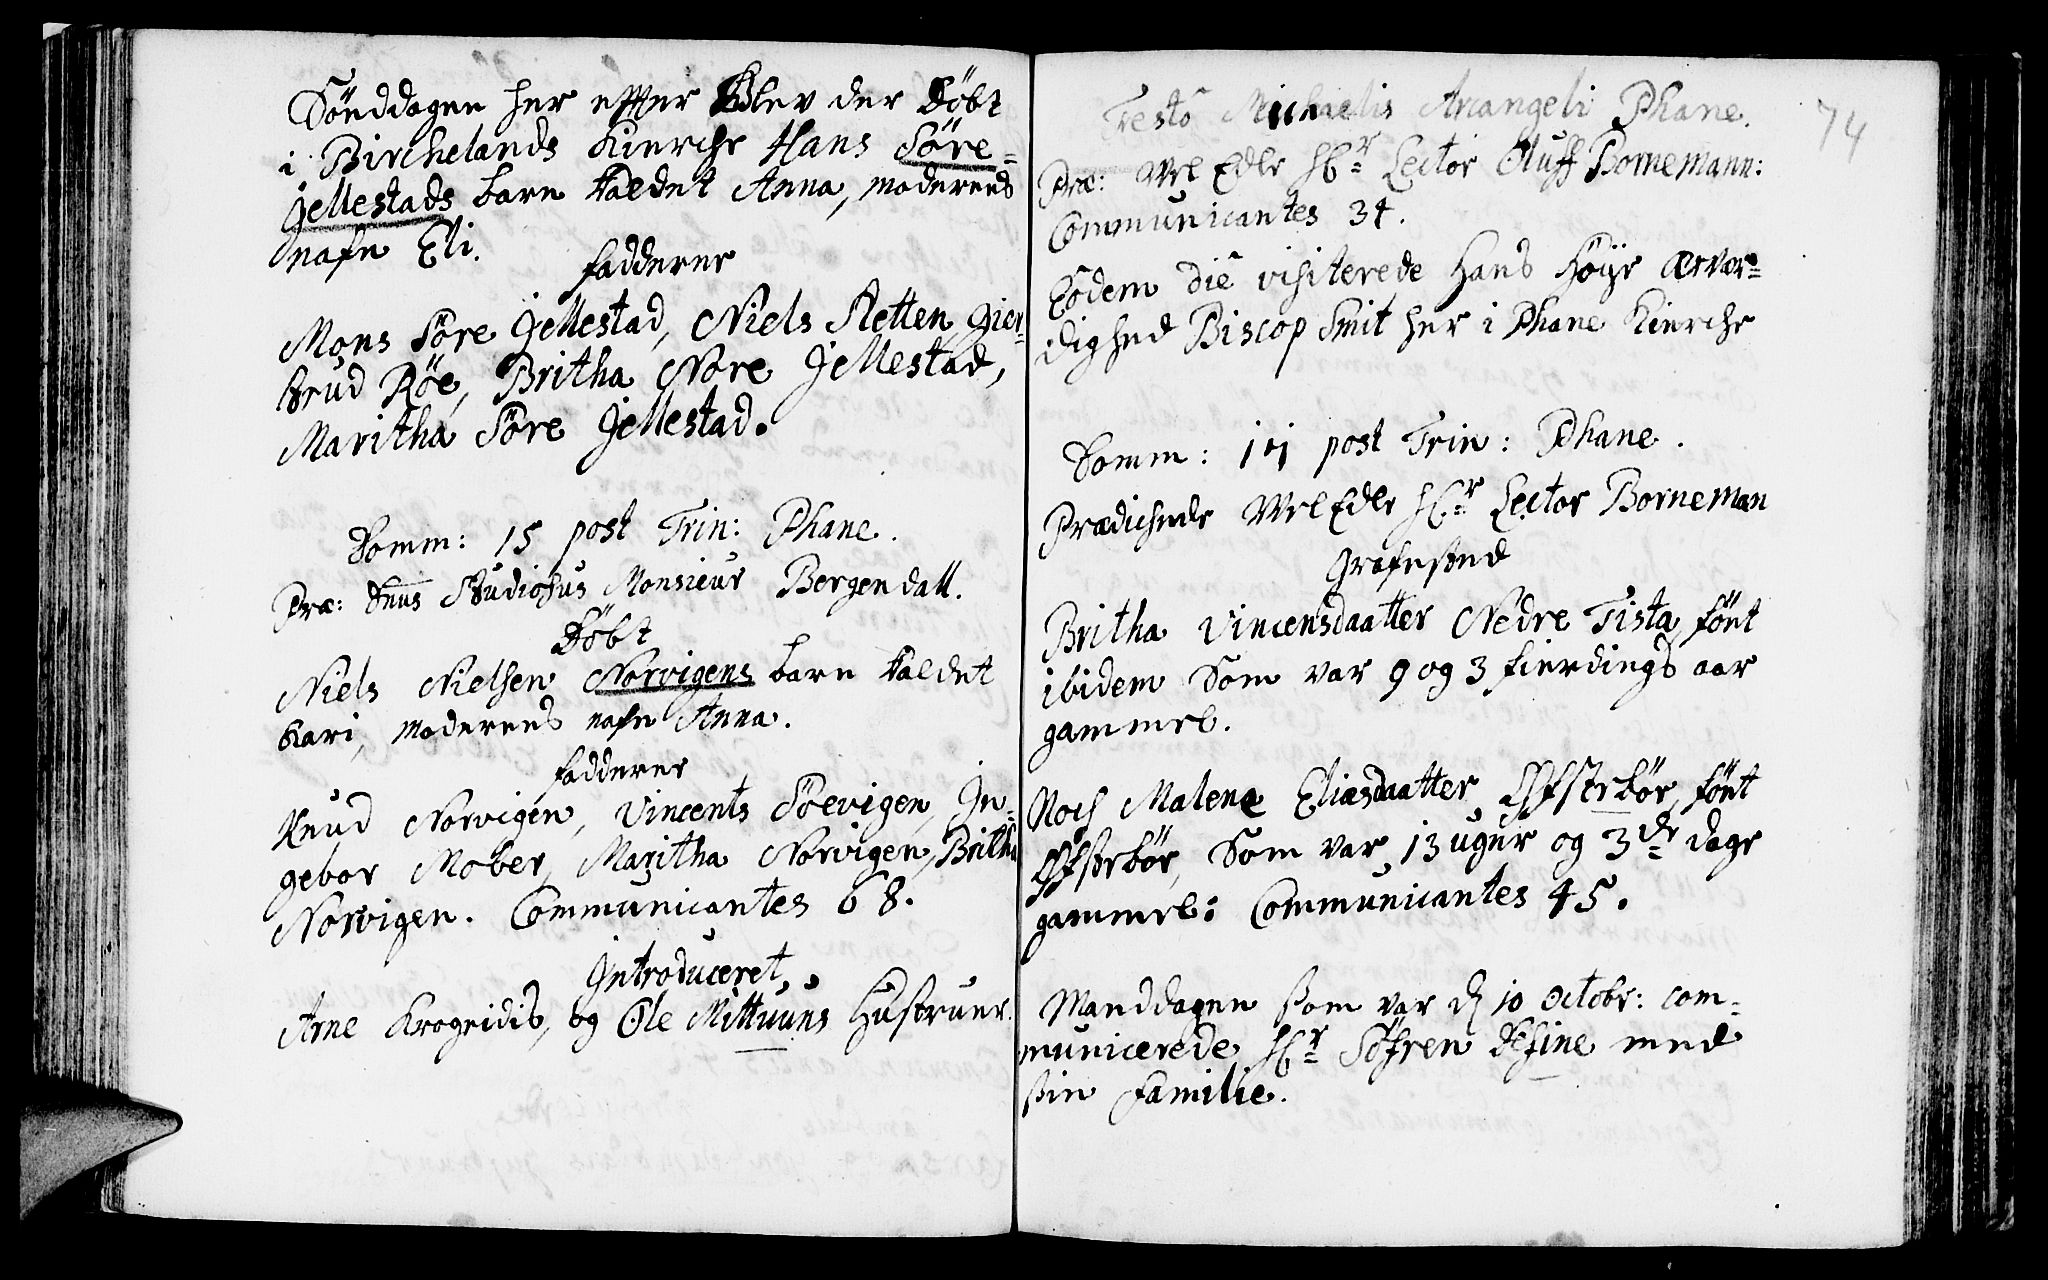 Sönddagen her effter Blev der Döbt
i Birchelands Kierche Hans Söre=
Jellestads barn kaldet Anna, moderens
nafn Eli.
fadderer
Mons Söre Jellestad, Niels Sletten, Gier=
trud Röe, Britha Nore Jellestad,
Maritha Söre Jellestad.
Domm: 15 post Trin: Phane.
Præ: Dnus Studiosus Monsieur Bergendall.
Döbt
Niels Nielsen Norvigens barn kaldet
Kari, moderens nafn Anna.
fadderer
Knud Norvigen, Vincents Söevigen, In=
gebor Mober, Maritha Norvigen, Britha
Norvigen. Communicantes 68.
Introduceret,
Arne Krogeidis, og Ole Mittuuns Hustruer.
74
Festo Michaelis Arcangeli Phane.
Præ: Vel Edle Hr Lector Oluff Bornemann:
Communicantes 34.
Eodem Die visiterede Hans Höye Ærvær=
dighed Biscop Smit her i Phane Kierche
Domm: 17 post Trin: Phane.
Prædichede Vel Edle Hr Lector Borneman
Grafested
Britha Vincensdaatter Nedre Tista, födt
ibidem som var 9 og 3 fierdings aar
gammel.
Noch Malena Eliasdaatter Öfsterbör, födt
Öfsterbör, som var 13 uger og 3de dage
gammel: Communicantes 45.
Manddagen som var d 10 Octobr: com=
municerede Hr Söfren Define med
sin Familie.